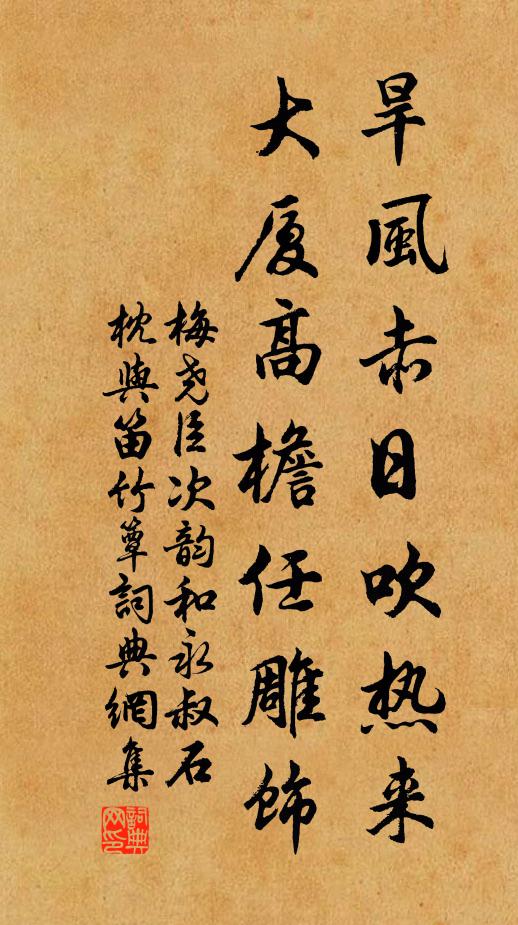 旱風赤日吹热来
大厦高檐任雕飾
梅尧臣次韵和永叔石
枕與笛竹簟詞典網集
詞典网印